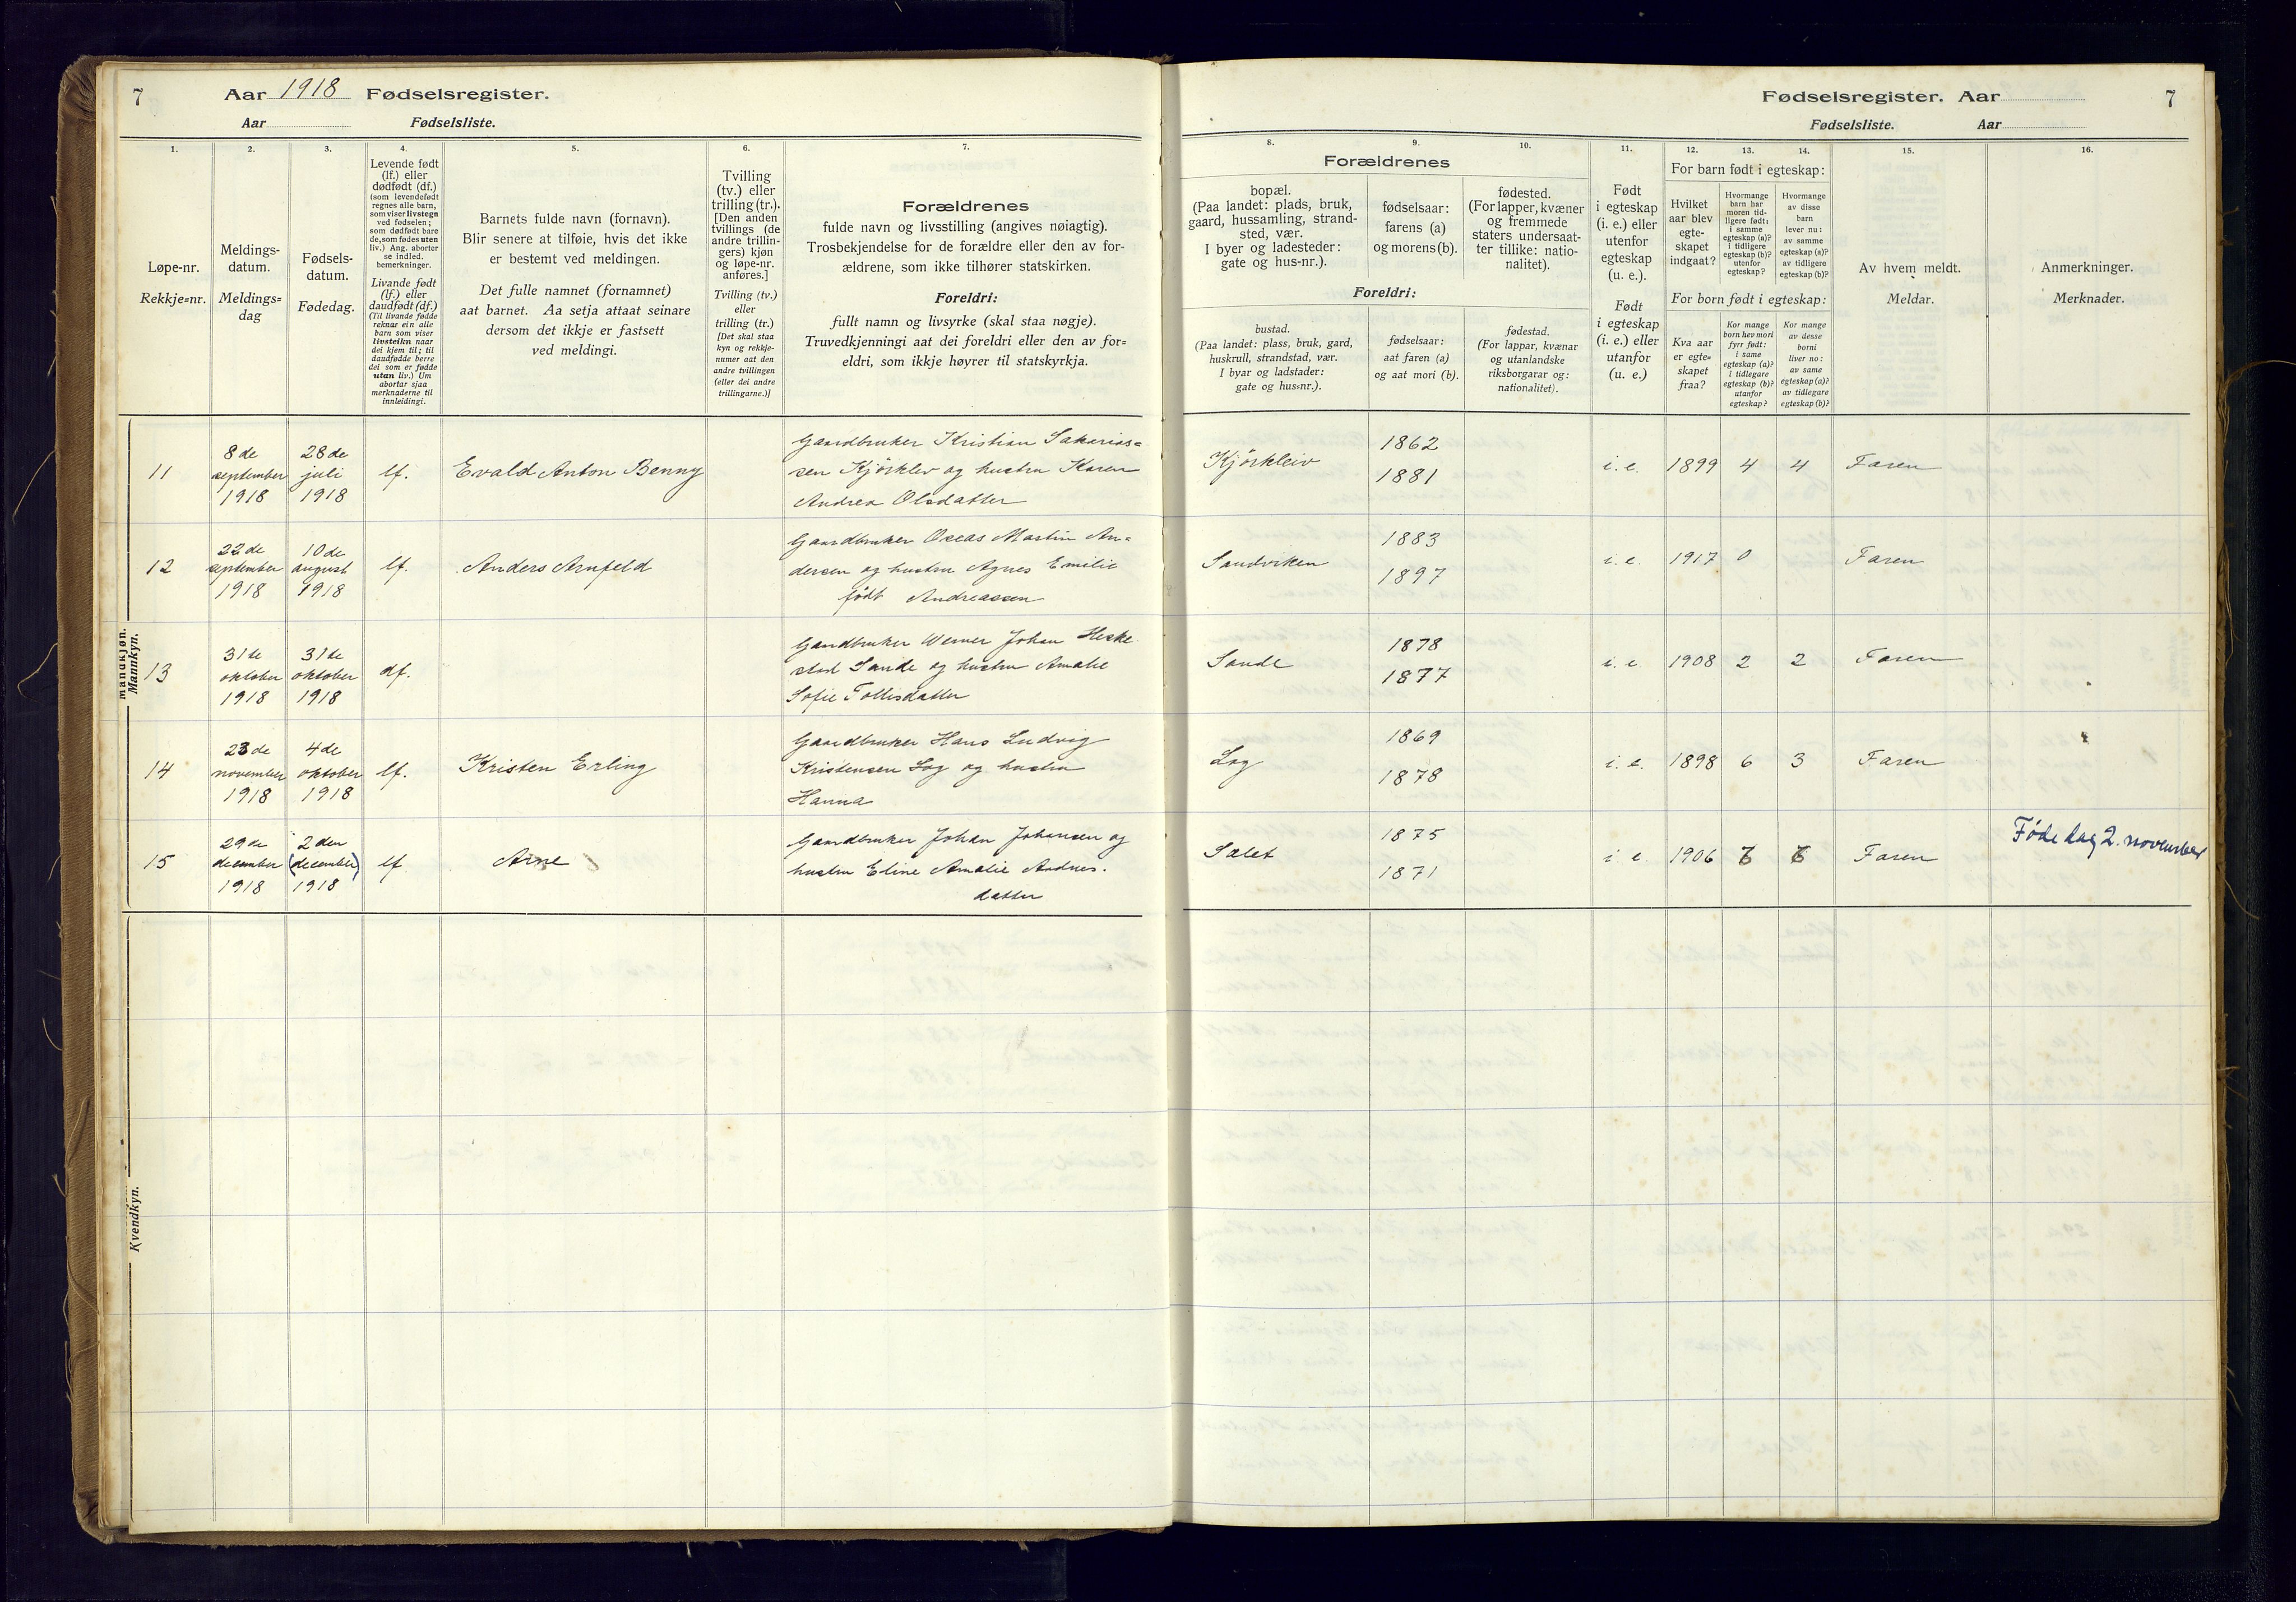 7
Aar 1918 Fødselsregister.
Aar Fødselsliste.
1.
2.
3.
4.
5.
6.
7.
Løpe-nr.
Rekkje=nr.
Meldings-
datum.
Meldings=
dag
Fødsels-
datum.
Fødedag.
Levende født
(lf.) eller
dødfødt (df.)
(som levendefødt
regnes alle barn,
som viser livstegn
ved fødselen;
som dødfødt bare
de, som fødes uten
liv.) Ang. aborter
se indled.
bemerkninger.
Livande født
(lf.) eller
daudfødt (df.)
(Til livande fødde
reknar ein alle
barn som viser
livsteikn naar
dei kjem til; til
daudfødde berre
dei som er fødde
utan liv.) Um
abortar sjaa
merknaderne til
innleidingi.
Barnets fulde navn (fornavn).
Blir senere at tilføie, hvis det ikke
er bestemt ved meldingen.
Det fulle namnet (fornamnet)
aat barnet. Aa setja attaat seinare
dersom det ikkje er fastsett
ved meldingi.
Tvilling
(tv.) eller
trilling (tr.).
[Den anden
tvillings (de
andre trillin-
gers) kjøn
og løpe-nr.
anføres.]
Tvilling (tv.)
eller
trilling (tr.)
[Det skal staa
kyn og rekkje-
numer aat den
andre tvillingen
(eller dei andre
trillingarne.)]
Forældrenes
fulde navn og livsstilling (angives nøiagtig).
Trosbekjendelse for de forældre eller den av for-
ældrene, som ikke tilhører statskirken.
Foreldri:
fullt namn og livsyrke (skal staa nøgje).
Truvedkjenningi aat dei foreldri eller den av for=
eldri, som ikkje høyrer til statskyrkja.
Mandkjøn.
Mannkyn.
11
8 de
september
1918
28 de
juli
1918
lf.
Evald Anton Benny
Gaardbruker Kristian Sakarias=
sen Kjørklev og hustru Karen
Andrea Olsdatter
12
22 de
september
1918
10 de
august
1918
lf.
Anders Arnfeld
Gaardbruker Oscar Martin An=
dersen og hustru Agnes Emilie
født Andreassen
13
31 te
oktober
1918
31 te
oktober
1918
df.
Gaardbruker Werner Johan Heske
stad Sande og hustru Amalie
Sofie Tollisdatter
14
23 de
november
1918
4 de
oktober
1918
lf.
Kristen Erling
Gaardbruker Hans Ludvig
Kristensen Log og hustru
Hanna
15
29 de
december
1918
2 den
(december)
1918
lf
Arne
Gaardbruker Johan Johansen og
hustru Eline Amalie Andres.
datter
Kvendkyn.
Fødselsregister. Aar
7
Fødselsliste. Aar
8.
9.
10.
11.
12.
13.
14.
15.
16.
Forældrenes
bopæl.
(Paa landet: plads, bruk,
gaard, hussamling, strand-
sted, vær.
I byer og ladesteder:
gate og hus-nr.).
fødselsaar:
farens (a)
og morens (b).
fødested.
(For lapper, kvæner
og fremmede
staters undersaat-
ter tillike: natio-
nalitet).
Foreldri:
bustad.
(Paa landet: plass, bruk, gard,
huskrull, strandstad, vær.
I byar og ladstader:
gate og hus=nr.).
fødselsaar:
aat faren (a)
og aat mori (b).
fødestad.
(For lappar, kvænar
og utanlandske
riksborgarar og:
nationalitet).
Født
i egteskap
(i. e.) eller
utenfor
egteskap
(u. e.).
Født
i egteskap
(i. e.) eller
utanfor
egteskap
(u. e.)
For barn født i egteskap:
Hvilket
aar blev
egte-
skapet
indgaat?
Hvormange
barn har
moren tid-
ligere født:
i samme
egteskap (a)?
i tidligere
egteskap (b)?
utenfor
egteskap?
Hvormange
av disse
barn
lever nu:
av samme
egteskap (a)?
av tidligere
egteskap (b)?
For born født i egteskap:
Kva aar
er egte=
skapet
fraa?
Kor mange
born hev mori
fyrr født:
i same
egteskap (a)?
i tidlegare
egteskap (b)?
utanfor
egteskap?
Kor mange
av desse
borni
liver no:
av same
egteskap (a)?
av tidlegare
egteskap (b)?
Av hvem meldt.
Meldar.
Anmerkninger.
Merknader.
Kjørkleiv
1862
1881
i. e. 1899 4 4 Faren
Sandviken
1883
1897
i. e. 1917 0 Faren
Sande
1878
1877
i. e. 1908 2 2 Faren
Log
1869
1878
i. e. 1898 6 3 Faren
Salet
1875
1871
i e 1906 Faren
Fødedag 2. november